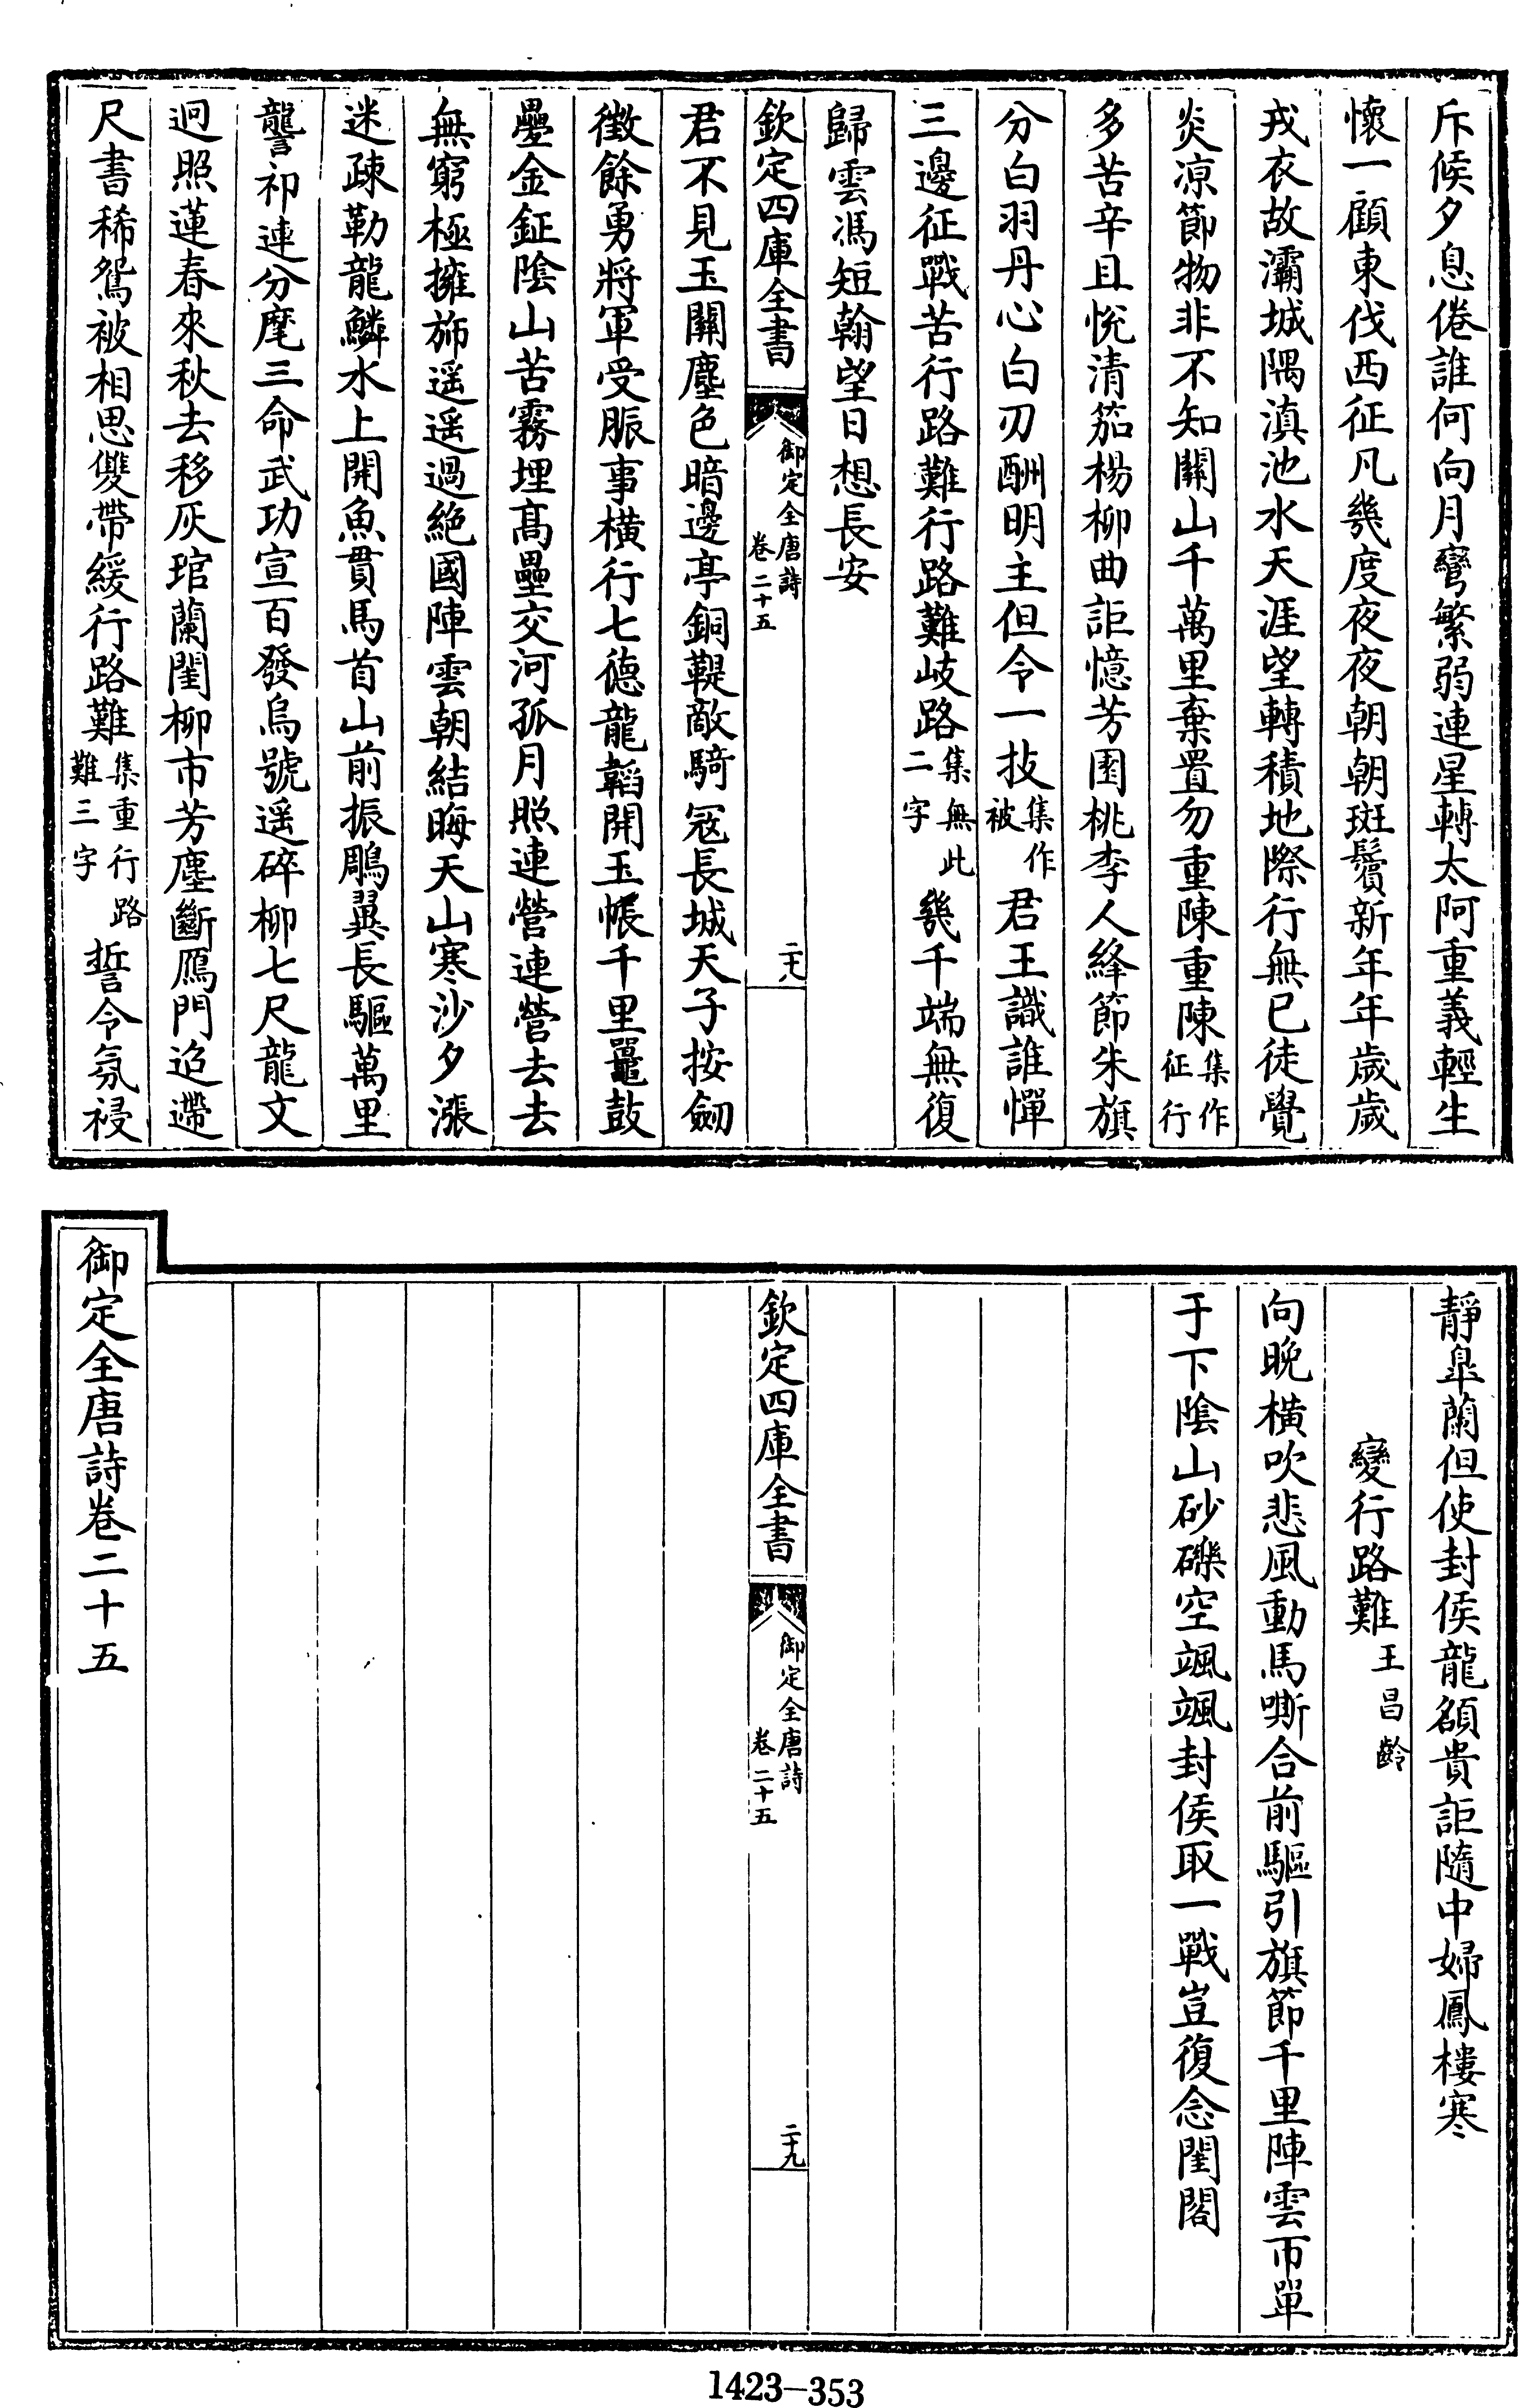 斥候夕息倦誰何向月彎繁弱連星轉太阿重義輕生
懷一顧東伐西征凡幾度夜夜朝朝斑鬢新年年歲歲
戎衣故灞城隅滇池水天涯望轉積地際行無已徒覺
炎凉節物非不知關山千萬里棄置勿重陳重陳集作征行
多苦辛且悅清笳楊柳曲詎憶芳園桃李人絳節朱旗
分白羽丹心白刃酬明主但令一技集作被君王識誰憚
三邊征戰苦行路難行路難岐路集無此二字幾千端無復
歸雲馮短翰望日想長安
欽定四庫全書
御定全唐詩
卷二十五
二十九
君不見玉關塵色暗邊亭銅鞮敵騎冦長城天子按劒
徵餘勇將軍受脤事橫行七德龍韜開玉帳千里鼉鼓
疊金鉦隂山苦霧埋髙壘交河孤月照連營連營去去
無窮極擁斾遥遥過絶國陣雲朝結晦天山寒沙夕漲
迷疎勒龍鱗水上開魚貫馬首山前振鵰翼長驅萬里
讋祁連分麾三命武功宣百發烏號遥碎柳七尺龍文
迥照蓮春來秋去移灰琯蘭閨柳市芳塵斷鴈門迢遰
尺書稀鴛被相思雙帶緩行路難集重行路難三字誓令氛祲
靜臯蘭但使封侯龍額貴詎隨中婦鳳樓寒
變行路難王昌齡
向晚橫吹悲風動馬嘶合前驅引旗節千里陣雲帀單
于下隂山砂礫空颯颯封侯取一戰豈復念閨閤
欽定四庫全書
御定全唐詩
卷二十五
二十九
御定全唐詩卷二十五
1423-353